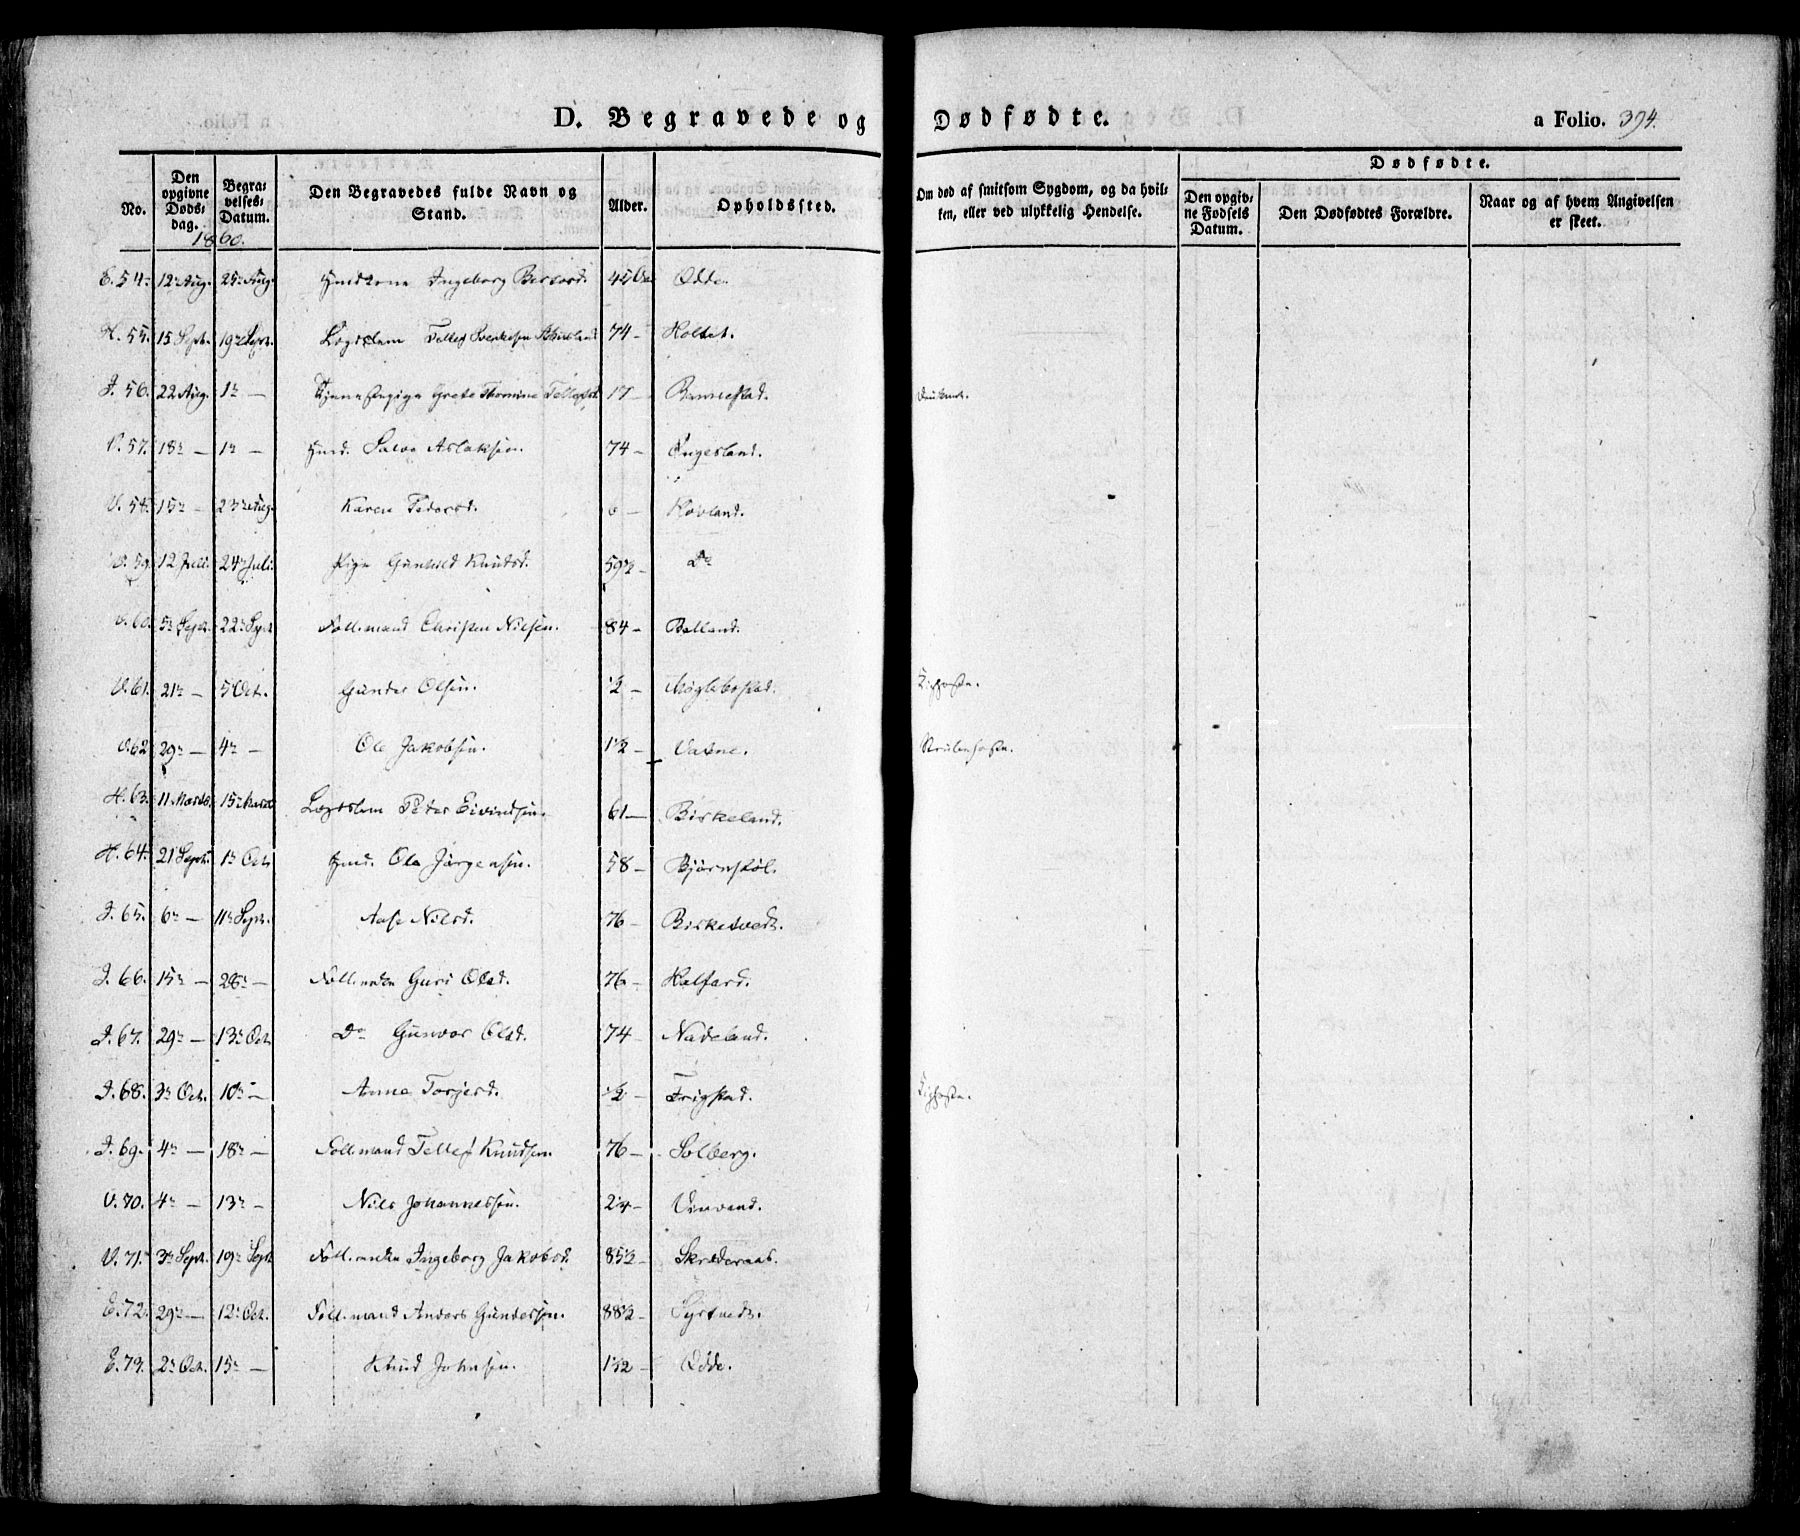 D. Begravede og Dødfødte. a Folio. 394.
No.
Den opgivne Døds-dag.
Begravelses-Datum.
Den Begravedes fulde Navn og Stand.
Alder.
Opholdssted.
Om død af smitsom Sygdom, og da hvilken, eller ved ulykkelig Hendelse.
Dødfødte.
Den opgivne Fødsels Datum.
Den Dødfødtes Forældre.
Naar og af hvem Angivelsen er skeet.
1860.
E. 54. 12te Aug. 25de Aug. Ingeborg 45 Odde.
H. 55. 15 Septr. 19de Septr. Lægdslem Tellef 74 — Holtet.
I. 56. 22 Aug. 1te — Grete Thomine Tellefsd. 17 — Bennestad.
V. 57. 18de — 1te — Gmd. Salve Aslaksen. 74 — Engesland.
V. 58. 15de — 23de Aug. Karen Pedersd. 6 — Kovland.
V. 59. 12 Juli. 24de Juli. Pige Gunhild Knudsd. 59½ — Do
V. 60. 5te Septr. 22de Septr. Foll.mand Christen Nilsen. 84 — Belland.
V. 61. 21de — 5 Oct. Gunder Olsen. ½ — Møglebostad. Kighoste.
V. 62. 29de — 4de — Ole Jakobsen. 1½ — Vatne. Strubehoste.
H. 63. 11 Marts. 15de Marts Lægdslem Peder Eivindsen. 61 — Birkeland.
H. 64. 21 Septr. 1te Oct. Gmd. Ole Jørgensen. 58 — Bjørnstøl.
I. 65. 6te — 11te Septr. Aase Nilsd. 76 — Birketvedt.
I. 66. 15de — 26de — Foll.enke Guri Olsd. 76 — Kalfard.
I. 67. 29de — 13de Oct. Do Gunvor Olsd. 74 — Nadeland.
I. 68. 3de Oct. 10de — Anne Torjersd. ½ — Frigstad. Kighoste.
I. 69. 4de — 18de — Foll.mand Tellef Knudsen. 76 — Solberg.
V. 70. 4de — 13de — Nils Johannessen. 2¼ — Vinvand.
V. 71. 3de Septr. 19de Septr. Foll.enke Ingeborg Jakobsd. 85½ — Skrederaas.
E. 72. 29de — 12te Oct. Foll.mand Anders Gundersen. 88½ — Syrtvedt.
E. 73. 2de Oct. 15de — Knud Johnsen. Odde.